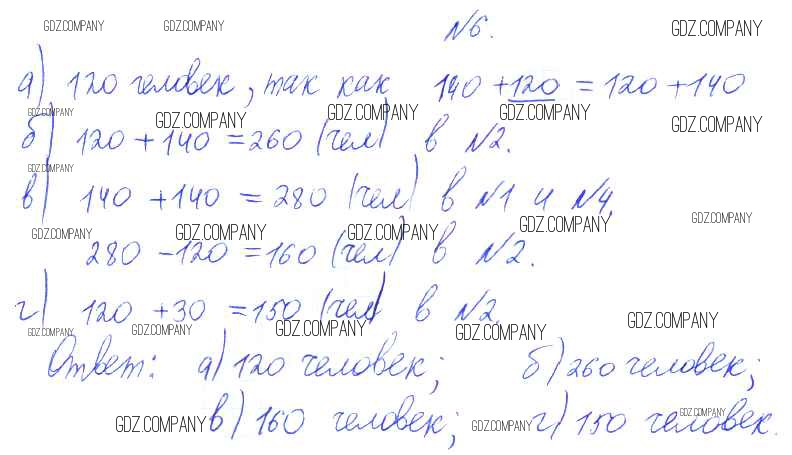 GDZ.COMPANY GDZ.COMPANY №6. GDZ.COMPANY
а) 120 человек, так как 140 + 120 = 120 + 140
GDZ.COMPANY GDZ.COMPANY GDZ.COMPANY GDZ.COMPANY GDZ.COMPANY
б) 120 + 140 = 260 (чел) в №2.
GDZ.COMPANY
в) 140 + 140 = 280 (чел) в №1 и №4
GDZ.COMPANY GDZ.COMPANY GDZ.COMPANY GDZ.COMPANY GDZ.COMPANY
280 - 120 = 160 (чел) в №2.
г) 120 + 30 = 150 (чел) в №2.
GDZ.COMPANY GDZ.COMPANY GDZ.COMPANY GDZ.COMPANY GDZ.COMPANY
Ответ: а) 120 человек; б) 260 человек;
GDZ.COMPANY в) 160 человек; GDZ.COMPANY г) 150 человек. GDZ.COMPANY